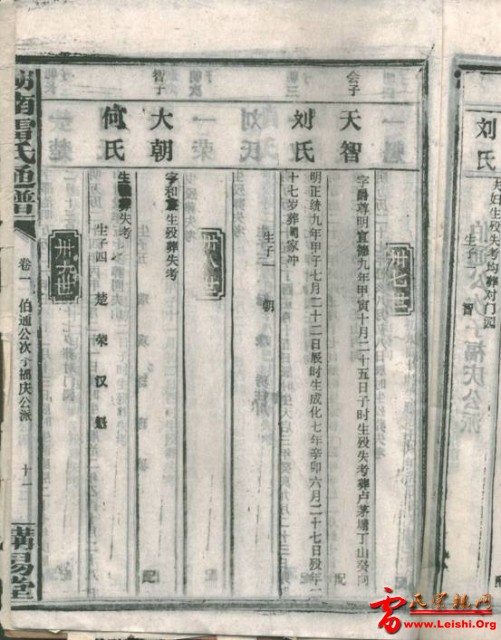 刘氏
夫妇生殁失考均葬对门四
生子一 智
卅七世
会子
天智
字爵尊明宣德九年甲寅十月二十五日子时生殁失考葬卢茅塘丁山癸向
配
刘氏
明正统九年甲子七月二十二日辰时生成化七年辛卯六月二十七日殁年二
十七岁葬周家冲
生子一 朝
卅八世
智子
大朝
字和 生殁葬失考
配
何氏
生殁葬失考
生子四 楚 荣 汉 魁
卅六世
湖南雷氏通谱
卷一
伯通公次子福庆公派
十一
講易堂
雷氏宗亲网
www.Leishi.Org